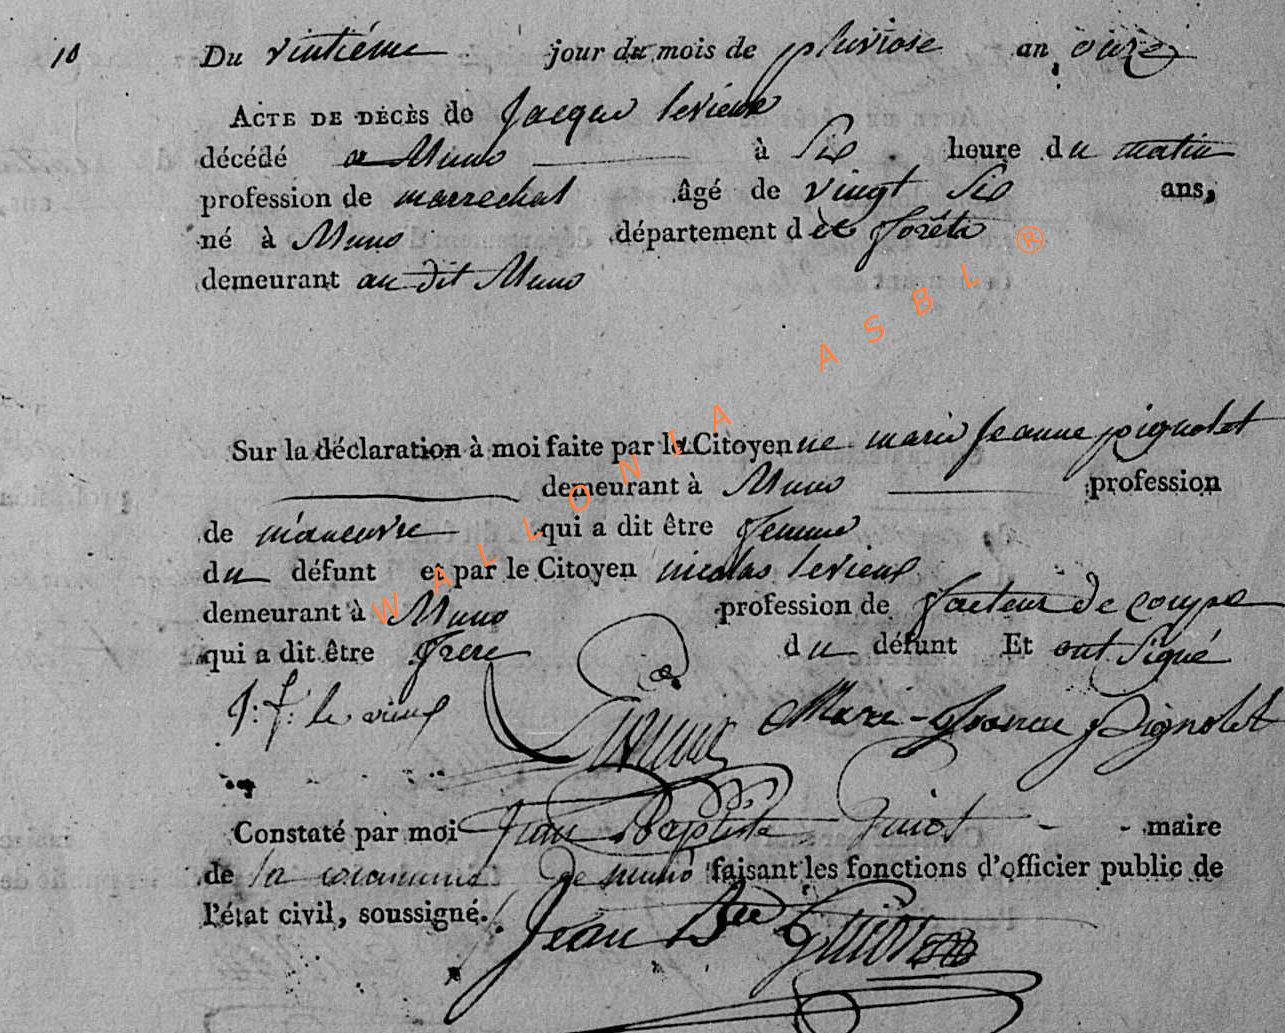 10 Du vintiéme jour du mois de pluviose an onze
ACTE DE DÉCÈS de Jacque levieux
décédé a Muno à Six heure du matin
profession de marrechal âgé de vingt Six ans,
né à Muno département des forêts
demeurant au dit Muno
Sur la déclaration à moi faite par la Citoyenne marie Jeanne pignolet
demeurant à Muno profession
de maneuvre qui a dit être femme
du défunt et par le Citoyen nicolas levieux
demeurant à Muno profession de facteur de coupe
qui a dit être frere du défunt Et ont Signé
J: f: le vieux Marie-Jeanne Pignolet
Constaté par moi Jean Baptiste Guiot maire
de la commune de muno faisant les fonctions d'officier public de
l'état civil, soussigné. Jean Bte Guiot
WALLONIA ASBL ®